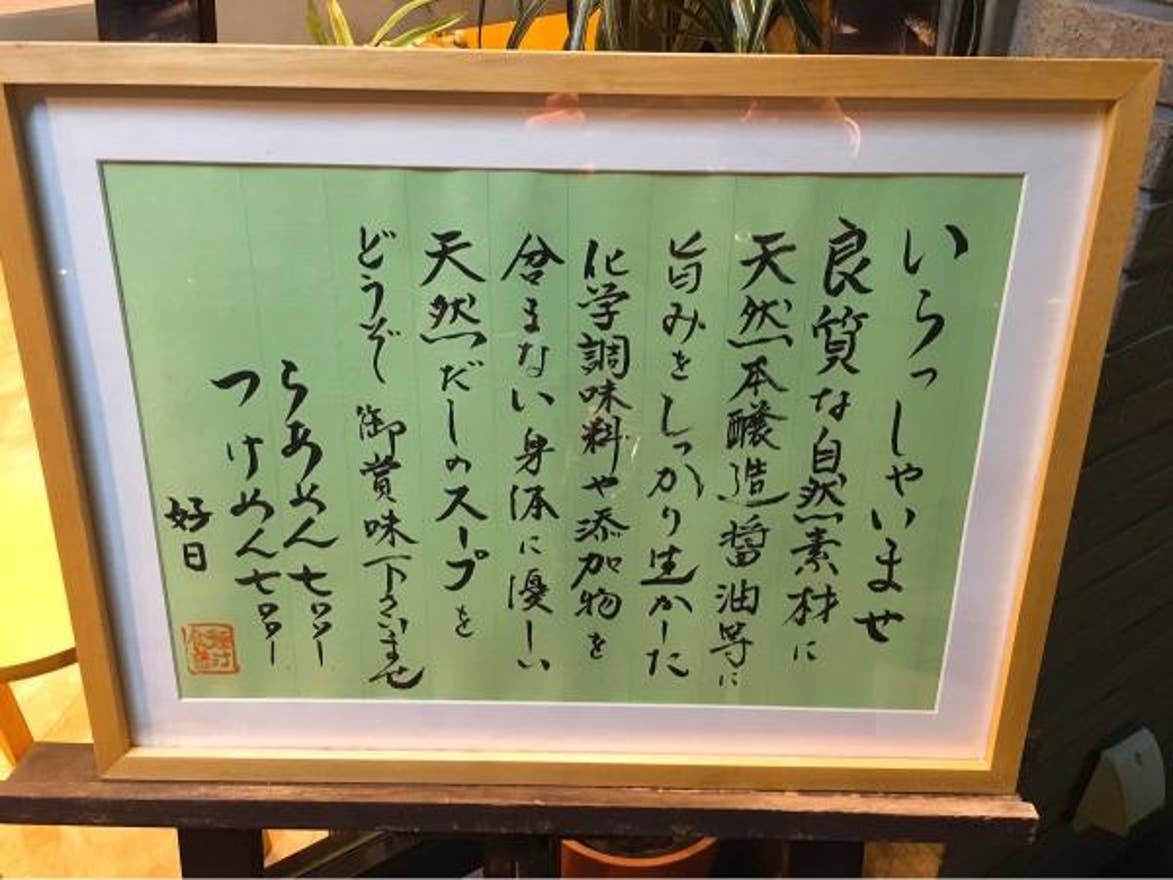 いらっしゃいませ
良質な自然素材に
天然本醸造醤油等に
旨みをしっかり生かした
化学調味料や添加物を
含まない身体に優しい
天然だしのスープを
どうぞ御賞味下さいませ
らあめん七〇〇ー
つけめん七〇〇ー
好日